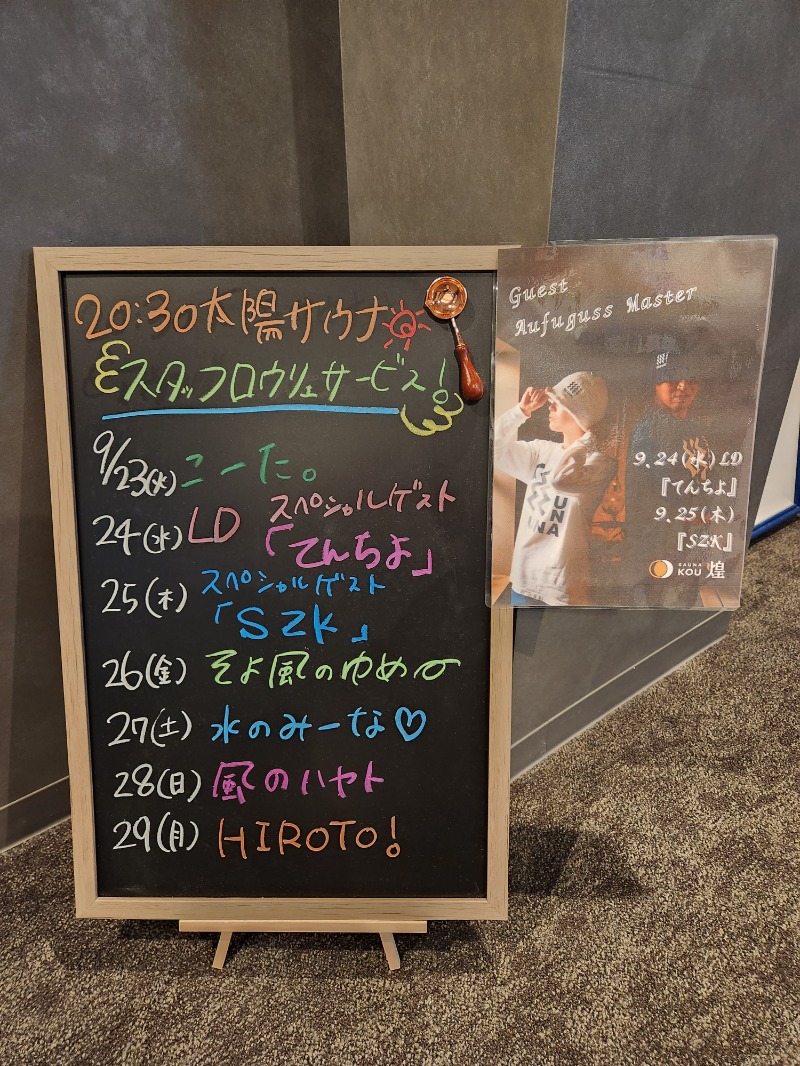 20:30太陽サウナ
スタッフロウリュサービス!
9/23(火)こーた。
24(水)LD スペシャルゲスト
「てんちよ」
25(木)スペシャルゲスト
「SZK」
26(金)そよ風のゆめの
27(土)水のみーな♡
28(日)風のハヤト
29(月)HIROTO!
Guest
Aufuguss Master
9.24(水)LD
『てんちよ』
9.25(木)
『SZK』
SAUNA
KOU 煌